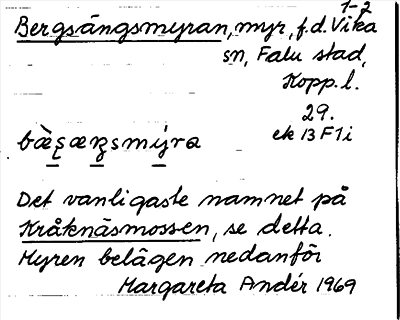 1-2
Bergsängsmyran, myr, f.d. Vika
sn, Falu stad,
Kopp. l.
29.
ek 13 F 1 i
Det vanligaste namnet på
Kråknäsmossen, se detta.
Myren belägen nedanför
Margareta Andér 1969